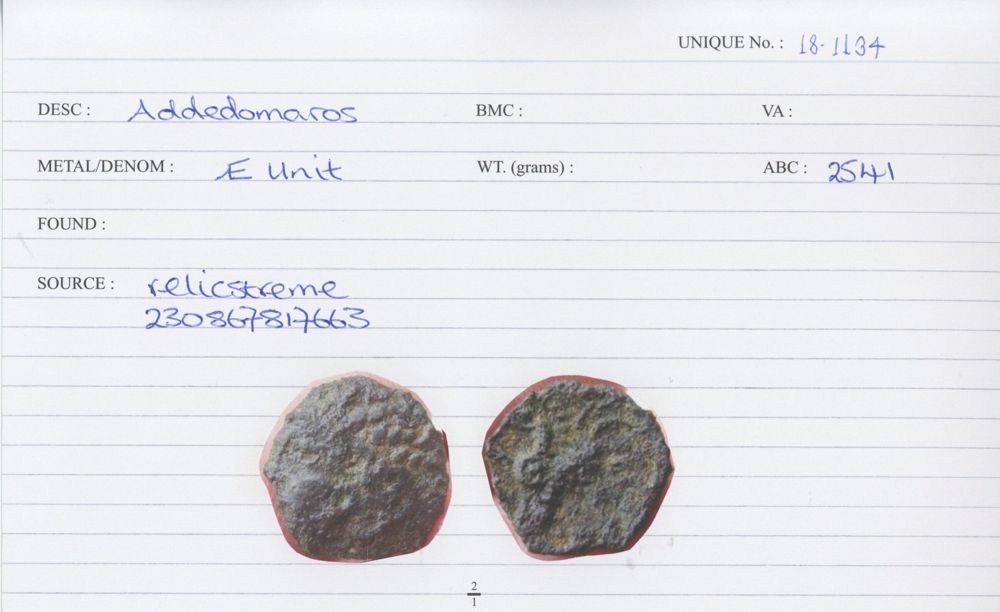 UNIQUE No. : 18-1134
DESC : Addedomaros BMC : VA :
METAL/DENOM : Æ Unit WT. (grams) : ABC : 2541
FOUND :
SOURCE : relicstreme
230867817663
2
1